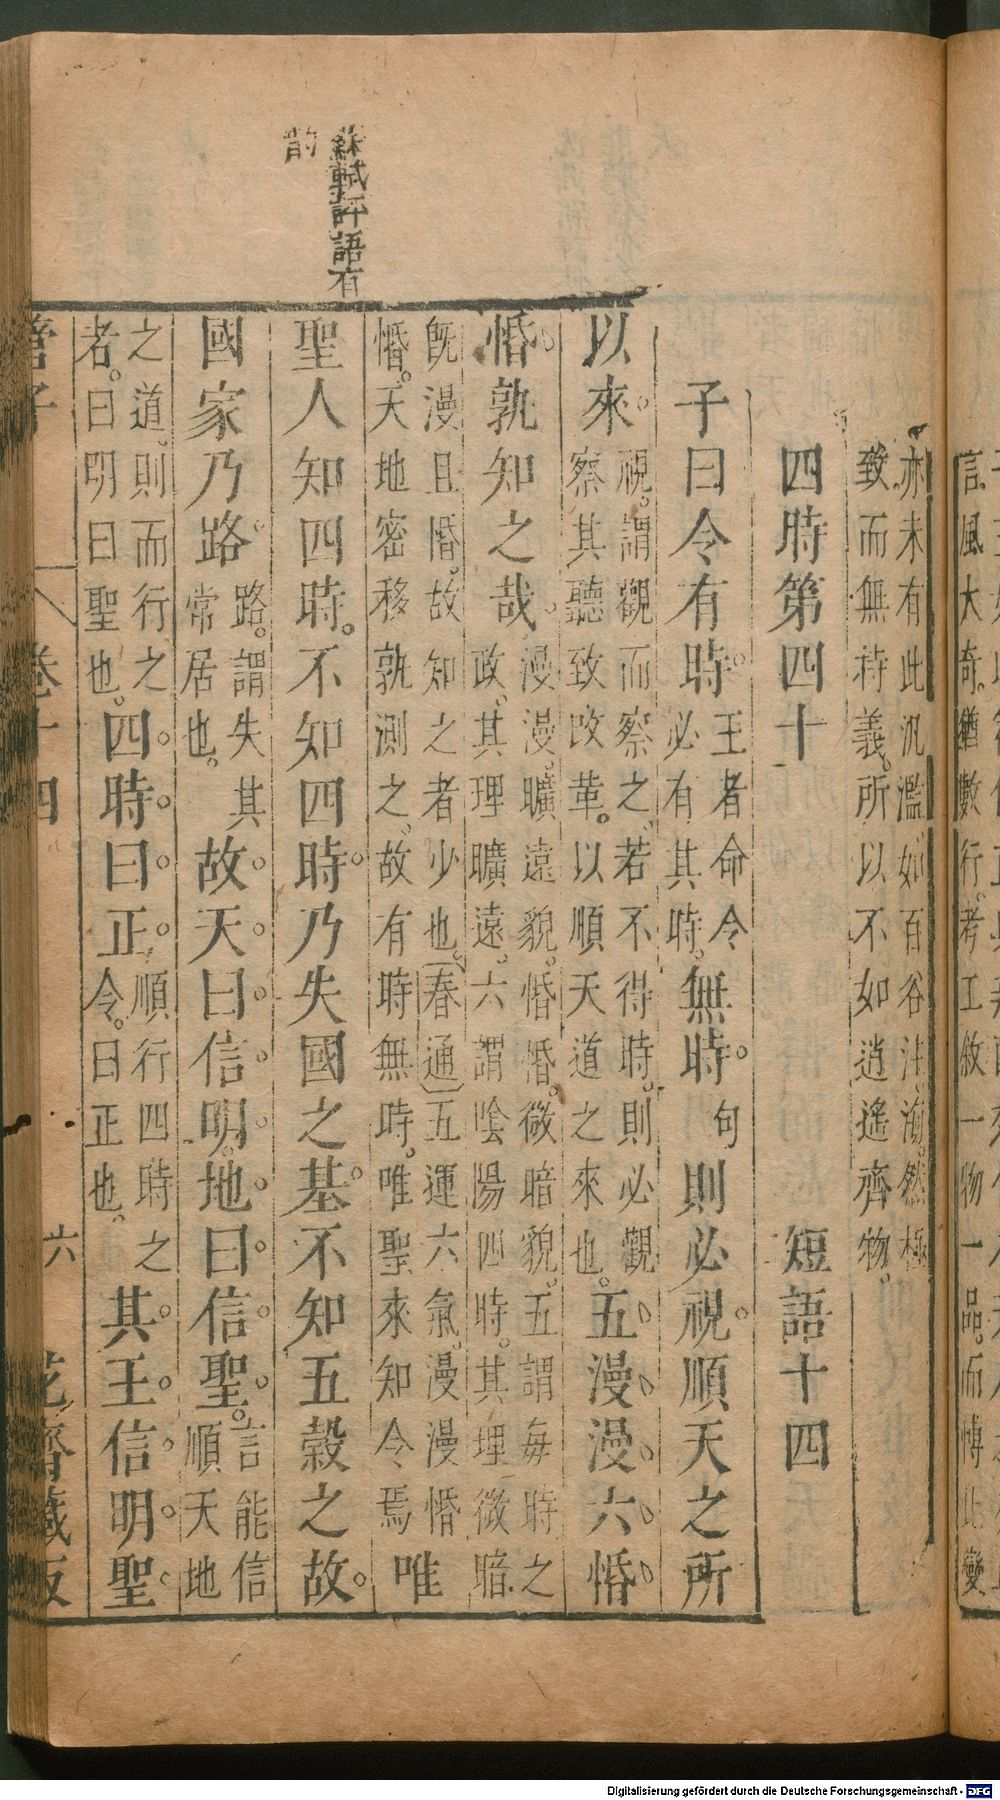 亦未有此汎濫如百谷注海然極
致而無待義所以不如逍遙齊物
四時第四十 短語十四
子曰令有時王者命令必有其時無時句則必視順天之所
以來視謂觀而察之若不得時則必觀察其聽致改革以順天道之來也五漫漫六惛
惛孰知之哉漫漫曠遠貌惛惛微暗貌五謂每時之政其理曠遠六謂陰陽四時其理微暗
旣漫且惛故知之者少也春通五運六氣漫漫惛惛天地密移孰測之故有時無時唯聖來知令焉唯
聖人知四時不知四時乃失國之基不知五穀之故
國家乃路路謂失其常居也故天曰信明地曰信聖言能信順天地
之道則而行之者曰明曰聖也四時曰正順行四時之令曰正也其王信明聖
管子 卷十四 六 花齋藏板
蘇軾評語有
前
言風大奇猶數行考工敘一物一品而博此變
Digitalisierung gefördert durch die Deutsche Forschungsgemeinschaft - DFG